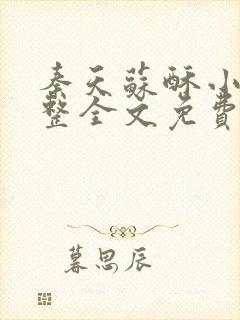 秦天蘇酥小
整全文免費
慕思辰